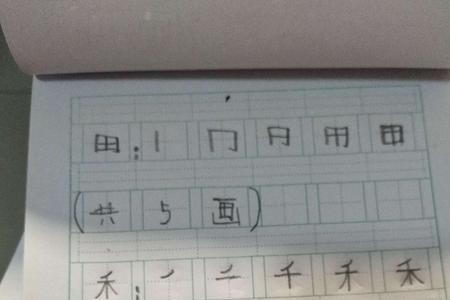 田:丨冂日用田
(共5画)
禾:丿二千禾禾